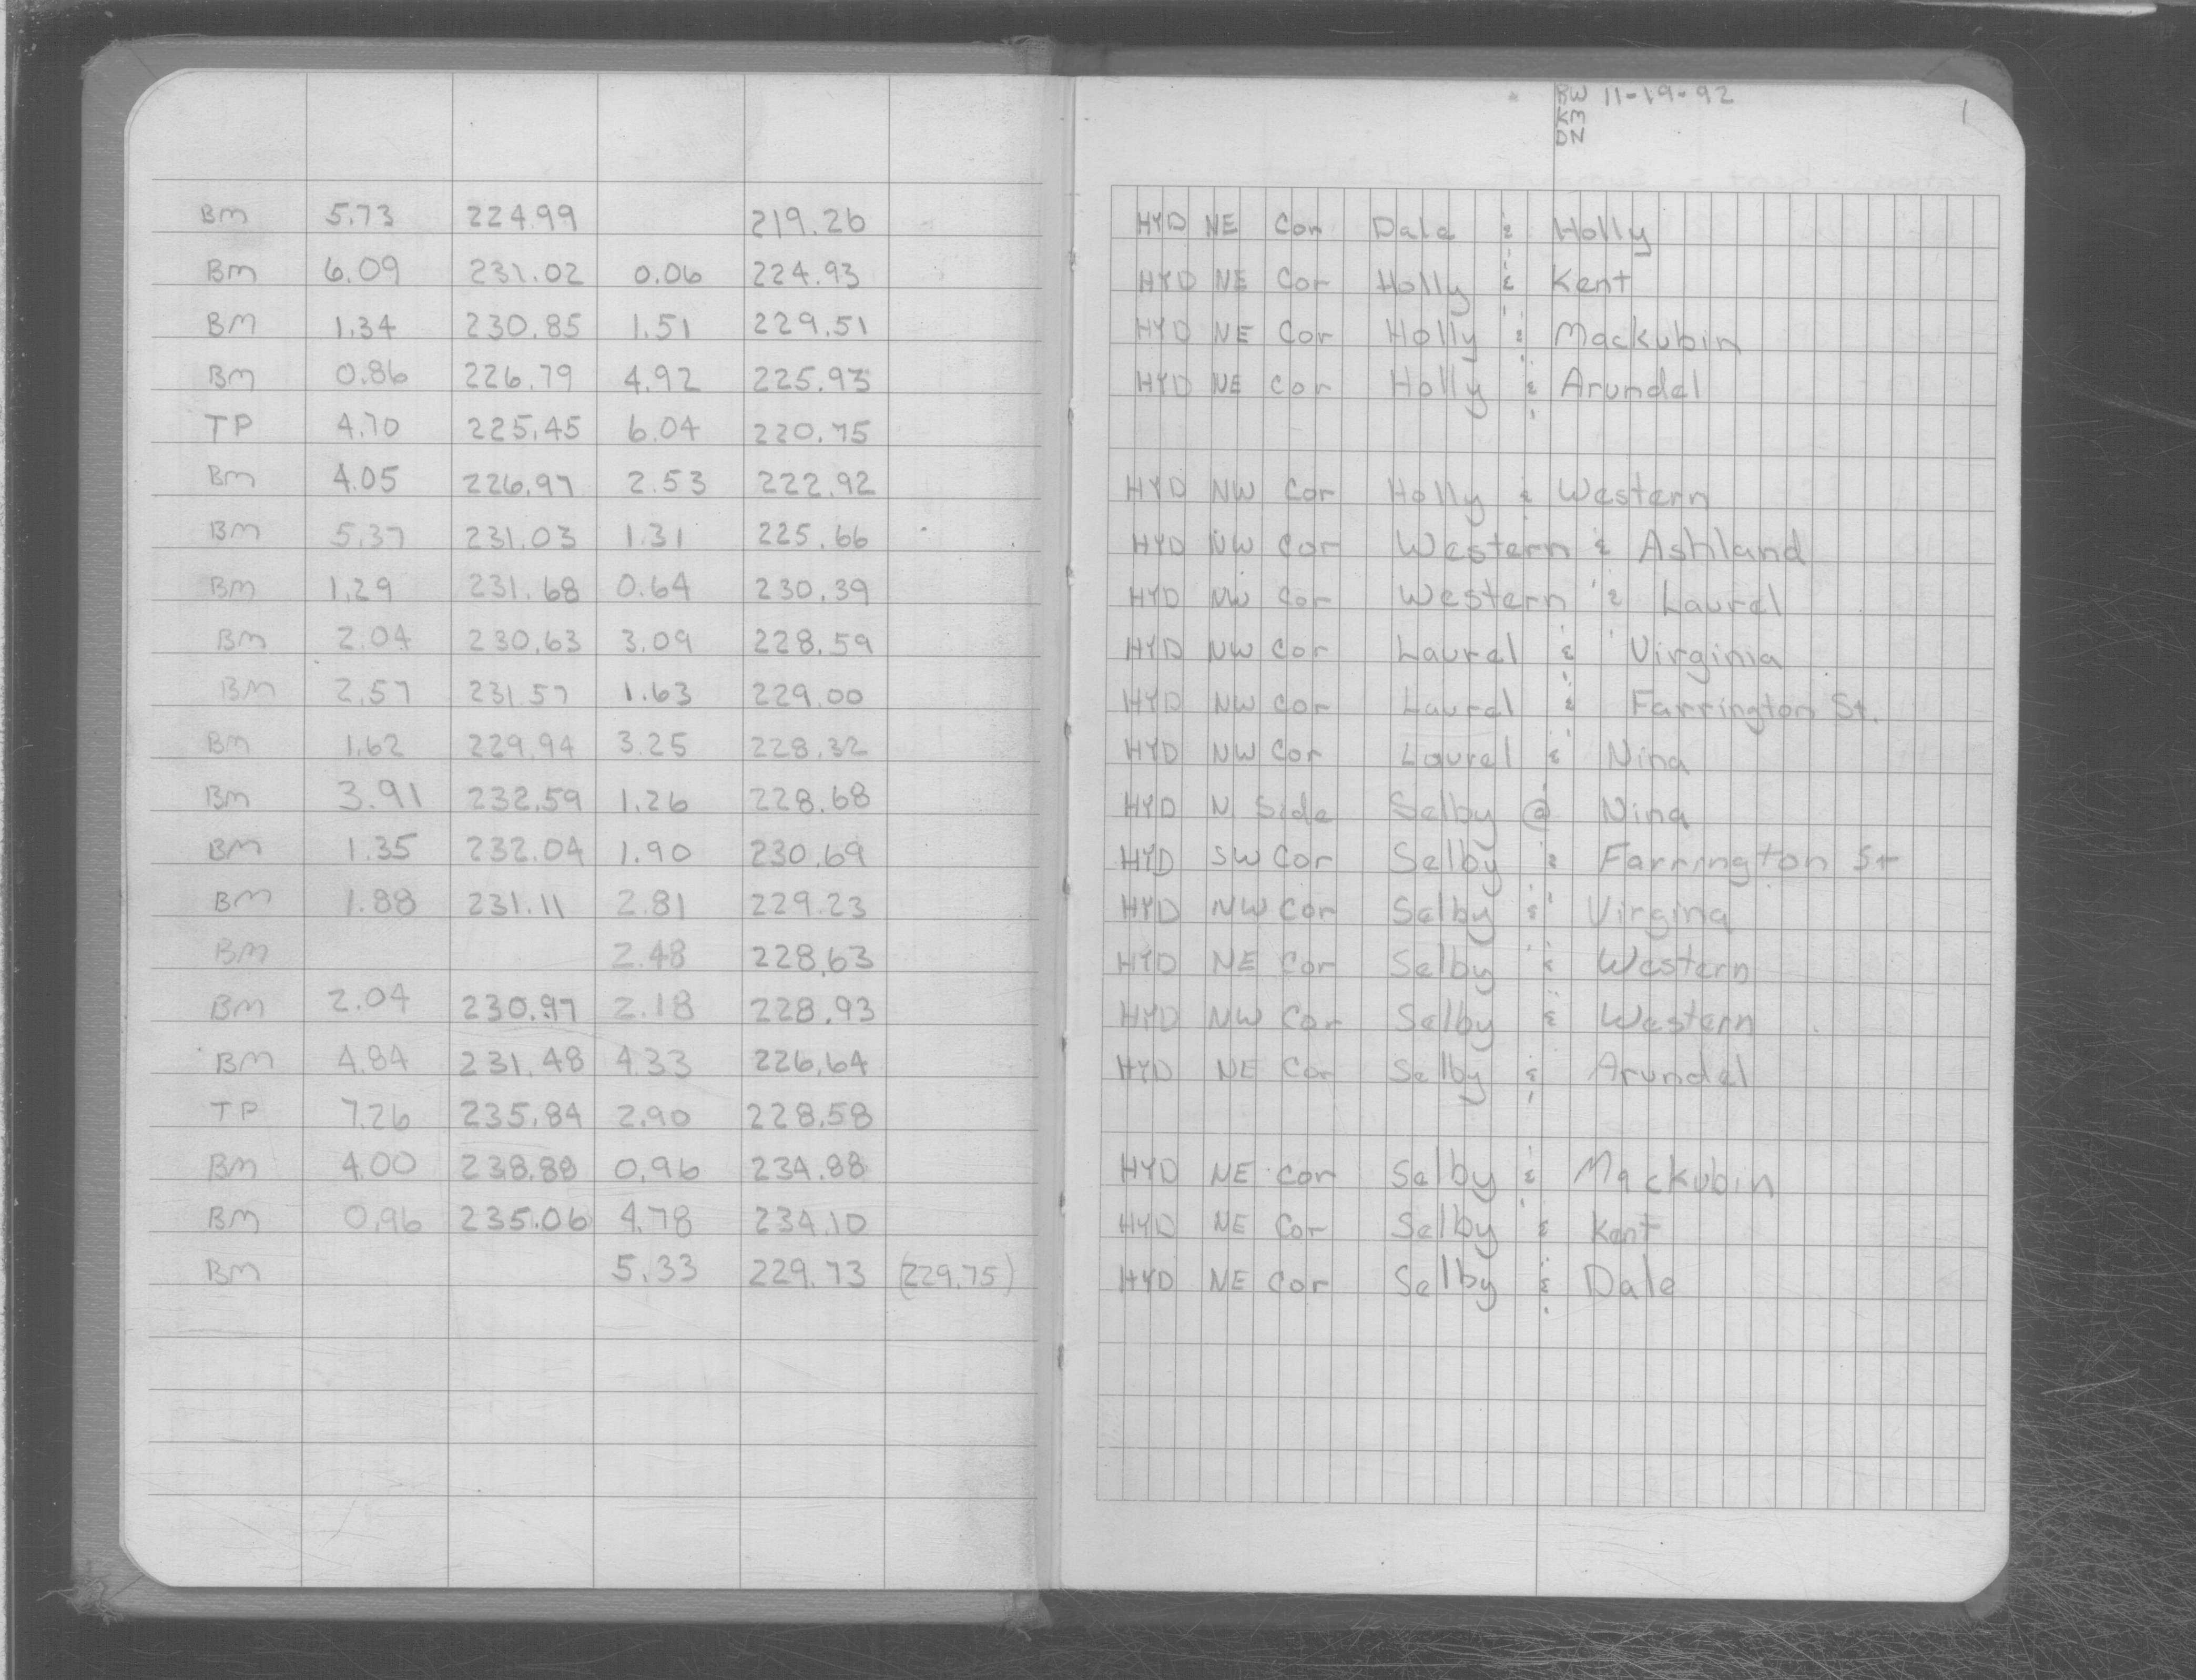 BW 11-19-92 1
KM
DN
BM 5.73 224.99 219.26 HYD NE Cor Dale & Holly
BM 6.09 231.02 0.06 224.93 HYD NE Cor Holly & Kent
BM 1.34 230.85 1.51 229.51 HYD NE Cor Holly & Mackubin
BM 0.86 226.79 4.92 225.93 HYD NE Cor Holly & Arundel
TP 4.70 225.45 6.04 220.75
BM 4.05 226.97 2.53 222.92 HYD NW Cor Holly & Western
BM 5.37 231.03 1.31 225.66 HYD NW Cor Western & Ashland
BM 1.29 231.68 0.64 230.39 HYD NW Cor Western & Laurel
BM 2.04 230.63 3.09 228.59 HYD NW Cor Laurel & Virginia
BM 2.57 231.57 1.63 229.00 HYD NW Cor Laurel & Farrington St.
BM 1.62 229.94 3.25 228.32 HYD NW Cor Laurel & Nina
BM 3.91 232.59 1.26 228.68 HYD N Side Selby @ Nina
BM 1.35 232.04 1.90 230.69 HYD SW Cor Selby & Farrington St
BM 1.88 231.11 2.81 229.23 HYD NW Cor Selby & Virgina
BM 2.48 228.63 HYD NE Cor Selby & Western
BM 2.04 230.97 2.18 228.93 HYD NW Cor Selby & Western
BM 4.84 231.48 4.33 226.64 HYD NE Cor Selby & Arundel
TP 7.26 235.84 2.90 228.58
BM 4.00 238.88 0.96 234.88 HYD NE Cor Selby & Mackubin
BM 0.96 235.06 4.78 234.10 HYD NE Cor Selby & Kent
BM 5.33 229.73 (229.75) HYD NE Cor Selby & Dale